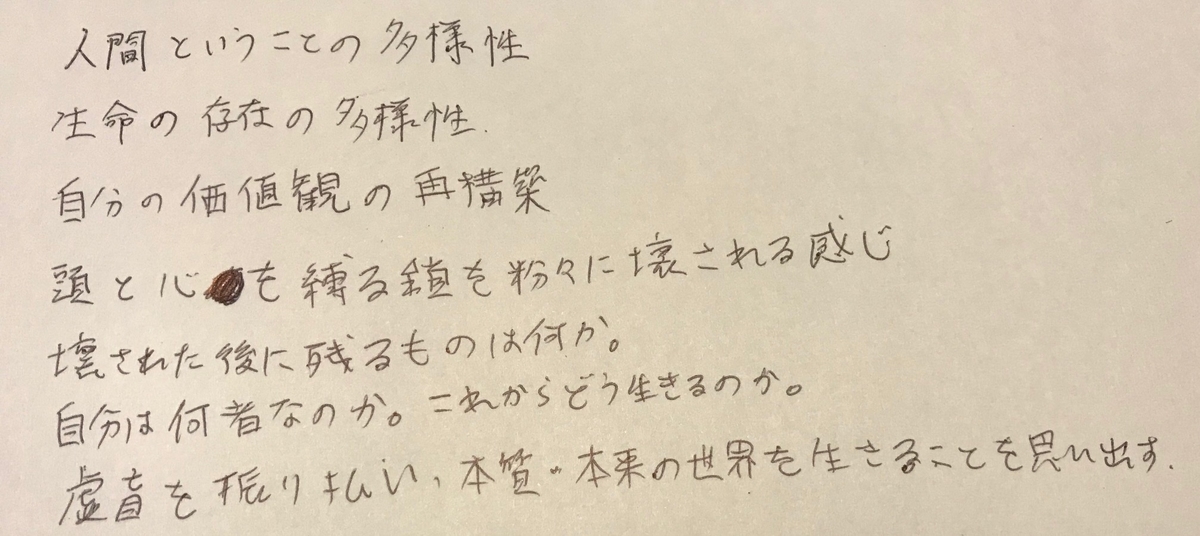 人間ということの多様性
生命の存在の多様性.
自分の価値観の再構築
頭と心を縛る鎖を粉々に壊される感じ
壊された後に残るものは何か。
自分は何者なのか。これからどう生きるのか。
虚音を振り払い、本質・本来の世界を生きることを思い出す.